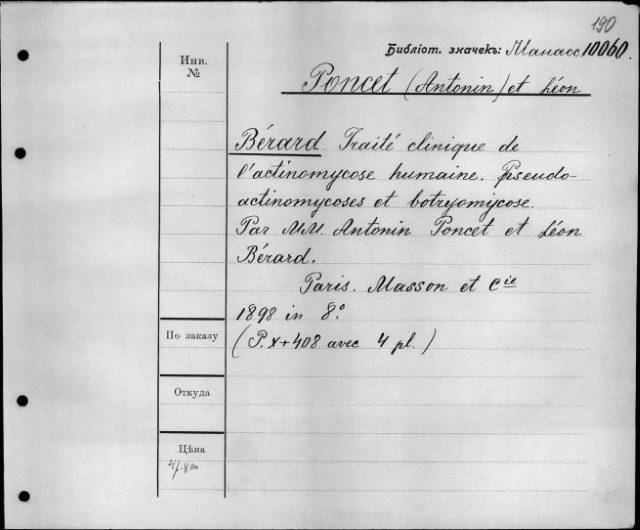 190
Библіот. значекъ: Манасс 10060.
Инв.
№
Poncet (Antonin) et Léon
Bérard. Traité clinique de
l'actinomycose humaine. Pseudo-
actinomycoses et botryomycose.
Par MM. Antonin Poncet et Léon
Bérard.
Paris. Masson et Cie
1898 in 8º.
По заказу
(P. X+408 avec 4 pl.)
Откуда
Цѣна